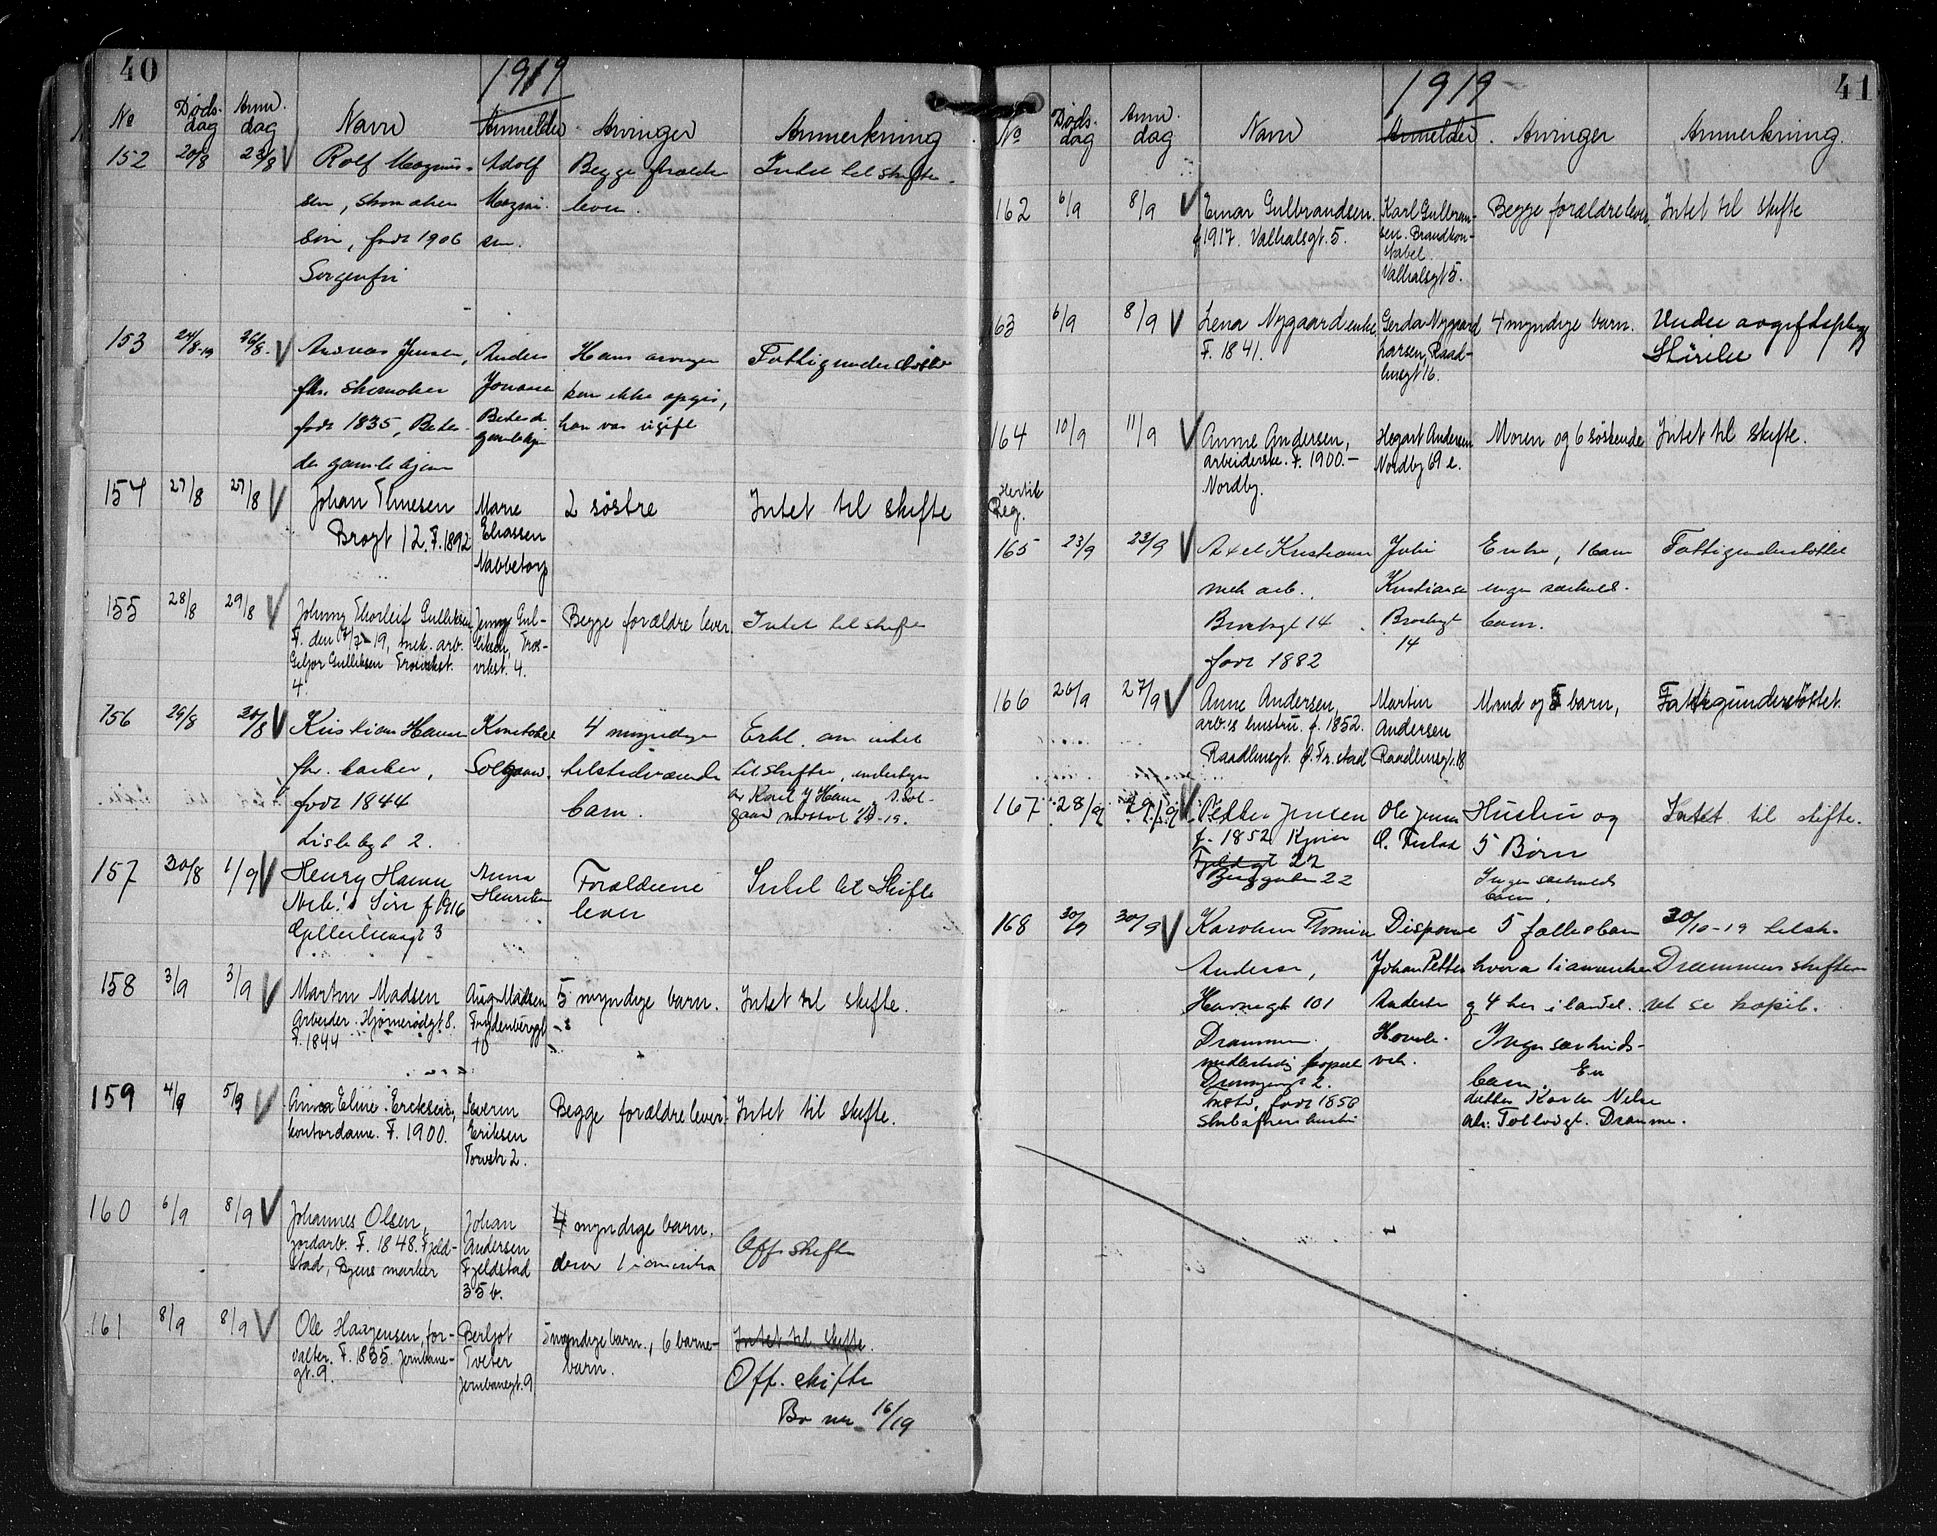 40
1919
No Døds-dag Anm.dag Navn Anmelder Arvinger Anmerkning
152 20/8 23/8 V Rolf Magnus- Adolf Begge forældre Intet til skifte.
sen, skomakers Magnus- lever.
søn, født 1906 sen.
Sorgenfri
153 24/8-19 26/8 V Andreas Jensen, Anders Hans arvinger Fattigunderstøttet
fhv. skomaker Jonassen kan ikke opgis,
født 1835, Betes- Betesda han var ugift
da gamlehjem gamlehjem
154 27/8 27/8 V Johan Thuesen Marie 2 søstre Intet til skifte
Brogt 12. F. 1892 Eliassen
Nabbetorp
155 28/8 29/8 V Johnny Thorleif Gulliksen Jenny Gul- Begge forældre lever Intet til skifte
F. den 17/7-19, mek. arb. liksen, Tros-
Geljor Gulliksen Trosvikst. vikst. 4.
4.
156 29/8 30/8 V Kristian Hansen Konstabel 4 myndige Erkl. om intet
fhv. barber, Solgaard. tilstedeværende til skifte, undertegn
født 1844 barn. av Karl J Hansen, A. Sol-
Lislebygt 2. gaard
157 30/8 1/9 V Henry Hansen Anna Forældrene Intet til Skifte
Arb.'s Søn f 1916 Henriksen lever
Gyllenliewsgt 3
158 3/9 3/9 V Martin Madsen Aug. Madsen 5 myndige barn. Intet til skifte.
Arbeider. Hjørnerødgt 8. Frydenberggt
F. 1844 10
159 4/9 5/9 V Anna Eline Ericksen, Severin Begge forældre lever. Intet til skifte.
kontordame. F. 1900. Eriksen
Torvstr 2.
160 6/9 8/9 V Johannes Olsen, Johan 4 myndige barn.
jordarb. F. 1848. Fjeld- Andersen derav 1 i amerika Off. skifte
stad, Byens marker Fjeldstad
35 b.
161 8/9 8/9 V Ole Haagensen, for- Berljot 5 myndige barn, 6 barne- Intet til skifte.
valter. F. 1835. Jernbane- Tveter barn. Off. skifte
gt. 9. Jernbanegt. 9 Bo nr 16/19
41
1919
No Døds-dag Anm.dag Navn Anmelder Arvinger Anmerkning.
162 6/9 8/9 V Einar Gulbrandsen. Karl Gulbran- Begge forældre lever. Intet til skifte
f 1917. Valhalsgt. 5. sen. Brandkon-
stabel.
Valhalsgt 5.
63 6/9 8/9 V Lena Nygaard enke Gerda Nygaard 4 myndige barn. Under avgiftspligtig
F. 1841. Raad- Størrelse
husgt 16.
164 10/9 11/9 V Anne Andersen, Hogart Andersen Moren og 6 søskende Intet til skifte.
arbeiderske. F. 1900.- Nordby 69 e.
Nordby.
Reg.
165 23/9 23/9 V Axel Kristiansen Julie Enke, 1 barn Fattigunderstøttet
mek arb. Kristiansen ingen særkulds-
Brochsgt 14 Brochsgt barn.
født 1882 14
166 26/9 27/9 V Anne Andersen, Martin Mand og 5 barn, Fattigunderstøttet.
arb.'s hustru f. 1852. Andersen
Raadhusgt. Ø. Fr.stad Raadhusgt. 18
167 28/9 29/9 V Petter Jensen Ole Jensen Hustru og Intet til skifte.
f. 1852 Ø. Frstad 5 Børn
Fjeldgt 22 Ingen særkulds
Berggaten 22 barn.
168 30/9 30/9 V Karoline Tomine Disponent 5 fællesbarn 30/10-19 tilst.
Andersen, Johan Petter hvorav 1 i amerika Drammens skifter
Havnegt 101 Andersen og 4 her i landet. ret se kopib.
Drammen, Ingen særkulds-
midlertidig barn. En
2. datter Karen Nilsen
født 1858 adr: Toldbodgt. Drammen.
hustru